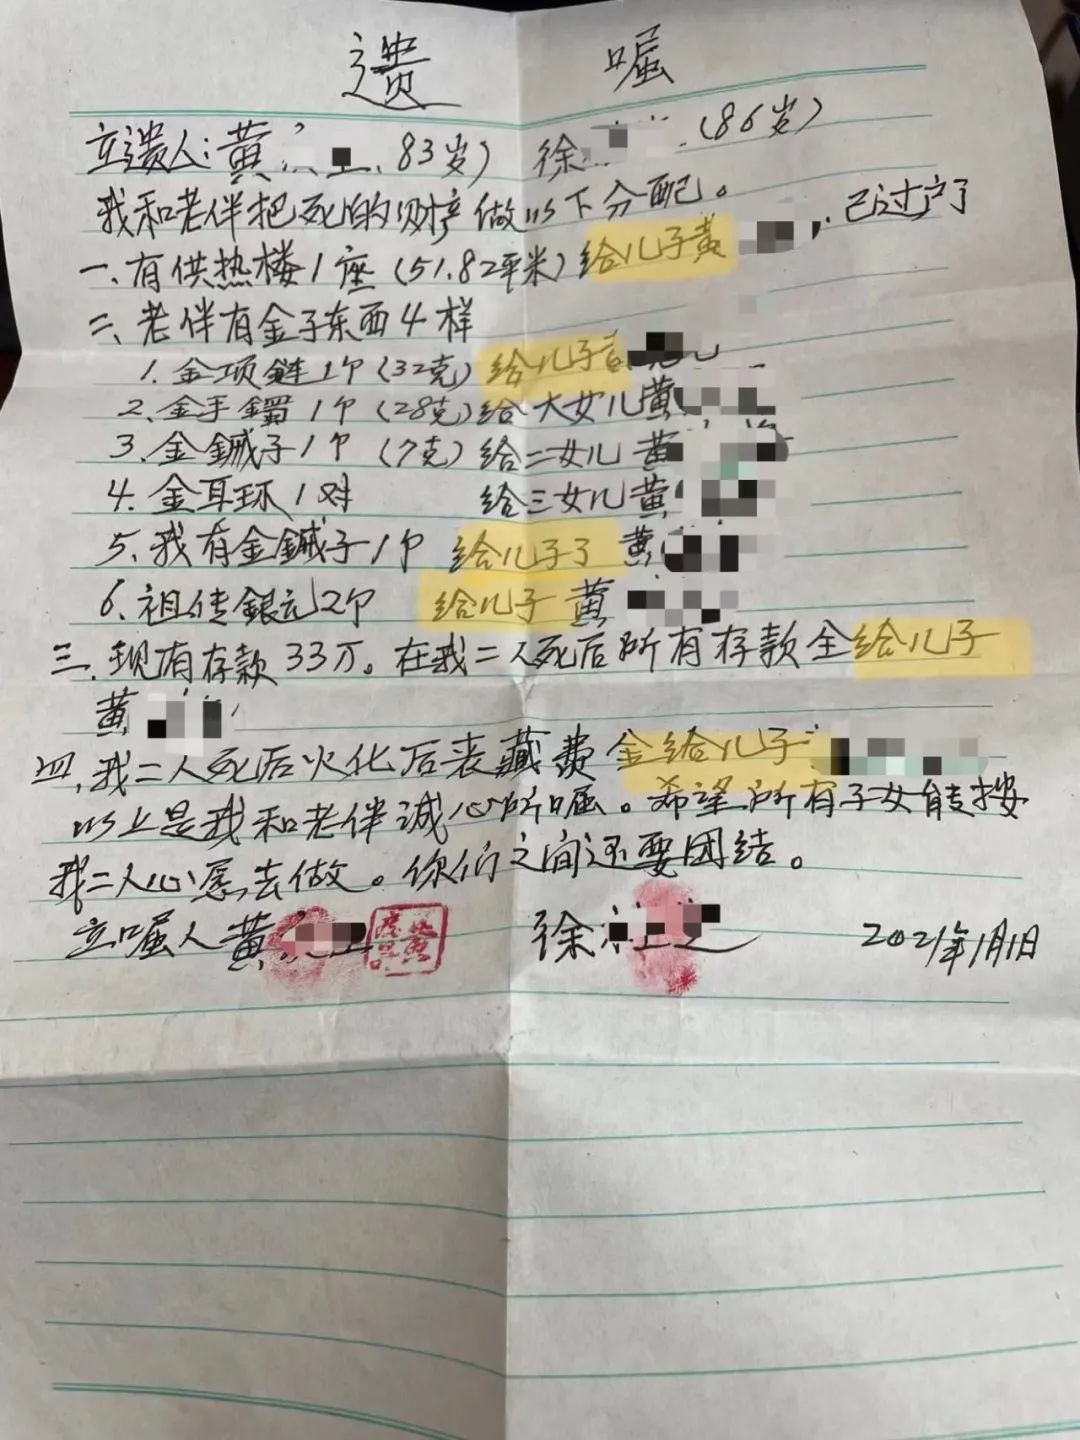 遗 嘱
立遗人：黄 83岁） 徐 （86岁）
我和老伴把死后的财产做以下分配。
一、有供热楼1座（51.82平米）给儿子黄 已过户了
二、老伴有金子东西4样
1、金项鏈1个（32克）给儿子黄
2、金手鐲1个（28克）给大女儿黄
3、金鎦子1个（7克）给二女儿黄
4、金耳环1对 给三女儿黄
5、我有金鎦子1个 给儿子了 黄
6、祖传銀元2个 给儿子 黄
三、现有存款33万。在我二人死后所有存款全给儿子
黄
四、我二人死后火化后丧藏费金给儿子
以上是我和老伴诚心所嘱。希望所有子女能按
我二人心愿去做。你们之间还要团结。
立嘱人黄 徐 2021年1月1日